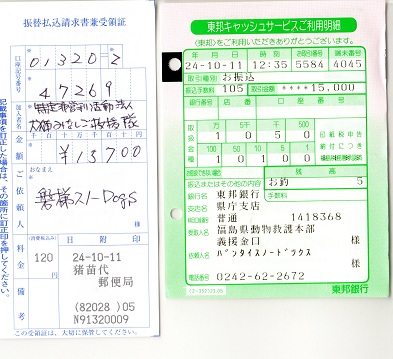 振替払込請求書兼受領証
口座記号番号
01320-2
47269
加入者名
特定非営利活動法人
犬猫みなしご救援隊 様
金額
千 百 十 万 千 百 十 円
¥13700
おなまえ
ご依頼人
磐梯スノーDogs
様
料金
(消費税込み)
120
円
日附印
24-10-11
猪苗代
郵便局
備考
(82028)05
N91320009
この受領証は、大切に保管してください。
記載事項を訂正した場合は、その箇所に訂正印を押してください。
東邦キャッシュサービスご利用明細
《東邦》をご利用いただきありがとうございます。
24-10-11 12:35 5584 4045
取引種別
お振込
振込手数料
105
取引金額
****15,000
銀行番号
支店番号
口座番号
万 5千 千 500
1 0 5 0
100 50 10 5 1
1 0 1 0 0
印紙税申告
納付につき
残高
振込またはその他の内容
お釣 5
銀行名
東邦銀行
支店名
県庁支店
普通 1418368
受取人名
福島県動物救護本部
義援金口 様
依頼人名
バンダイスノードッグス
様
電話番号
0242-62-2672
東邦銀行